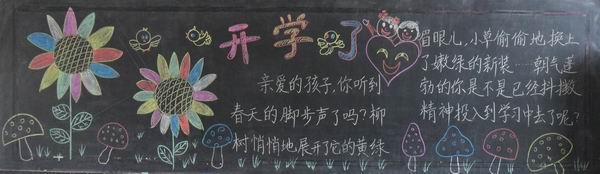 开学了
亲爱的孩子,你听到
春天的脚步声了吗?柳
树悄悄地展开了它的黄绿
眉眼儿,小草偷偷地换上
了嫩绿的新装……朝气蓬
勃的你是不是已经抖擞
精神投入到学习中去了呢?